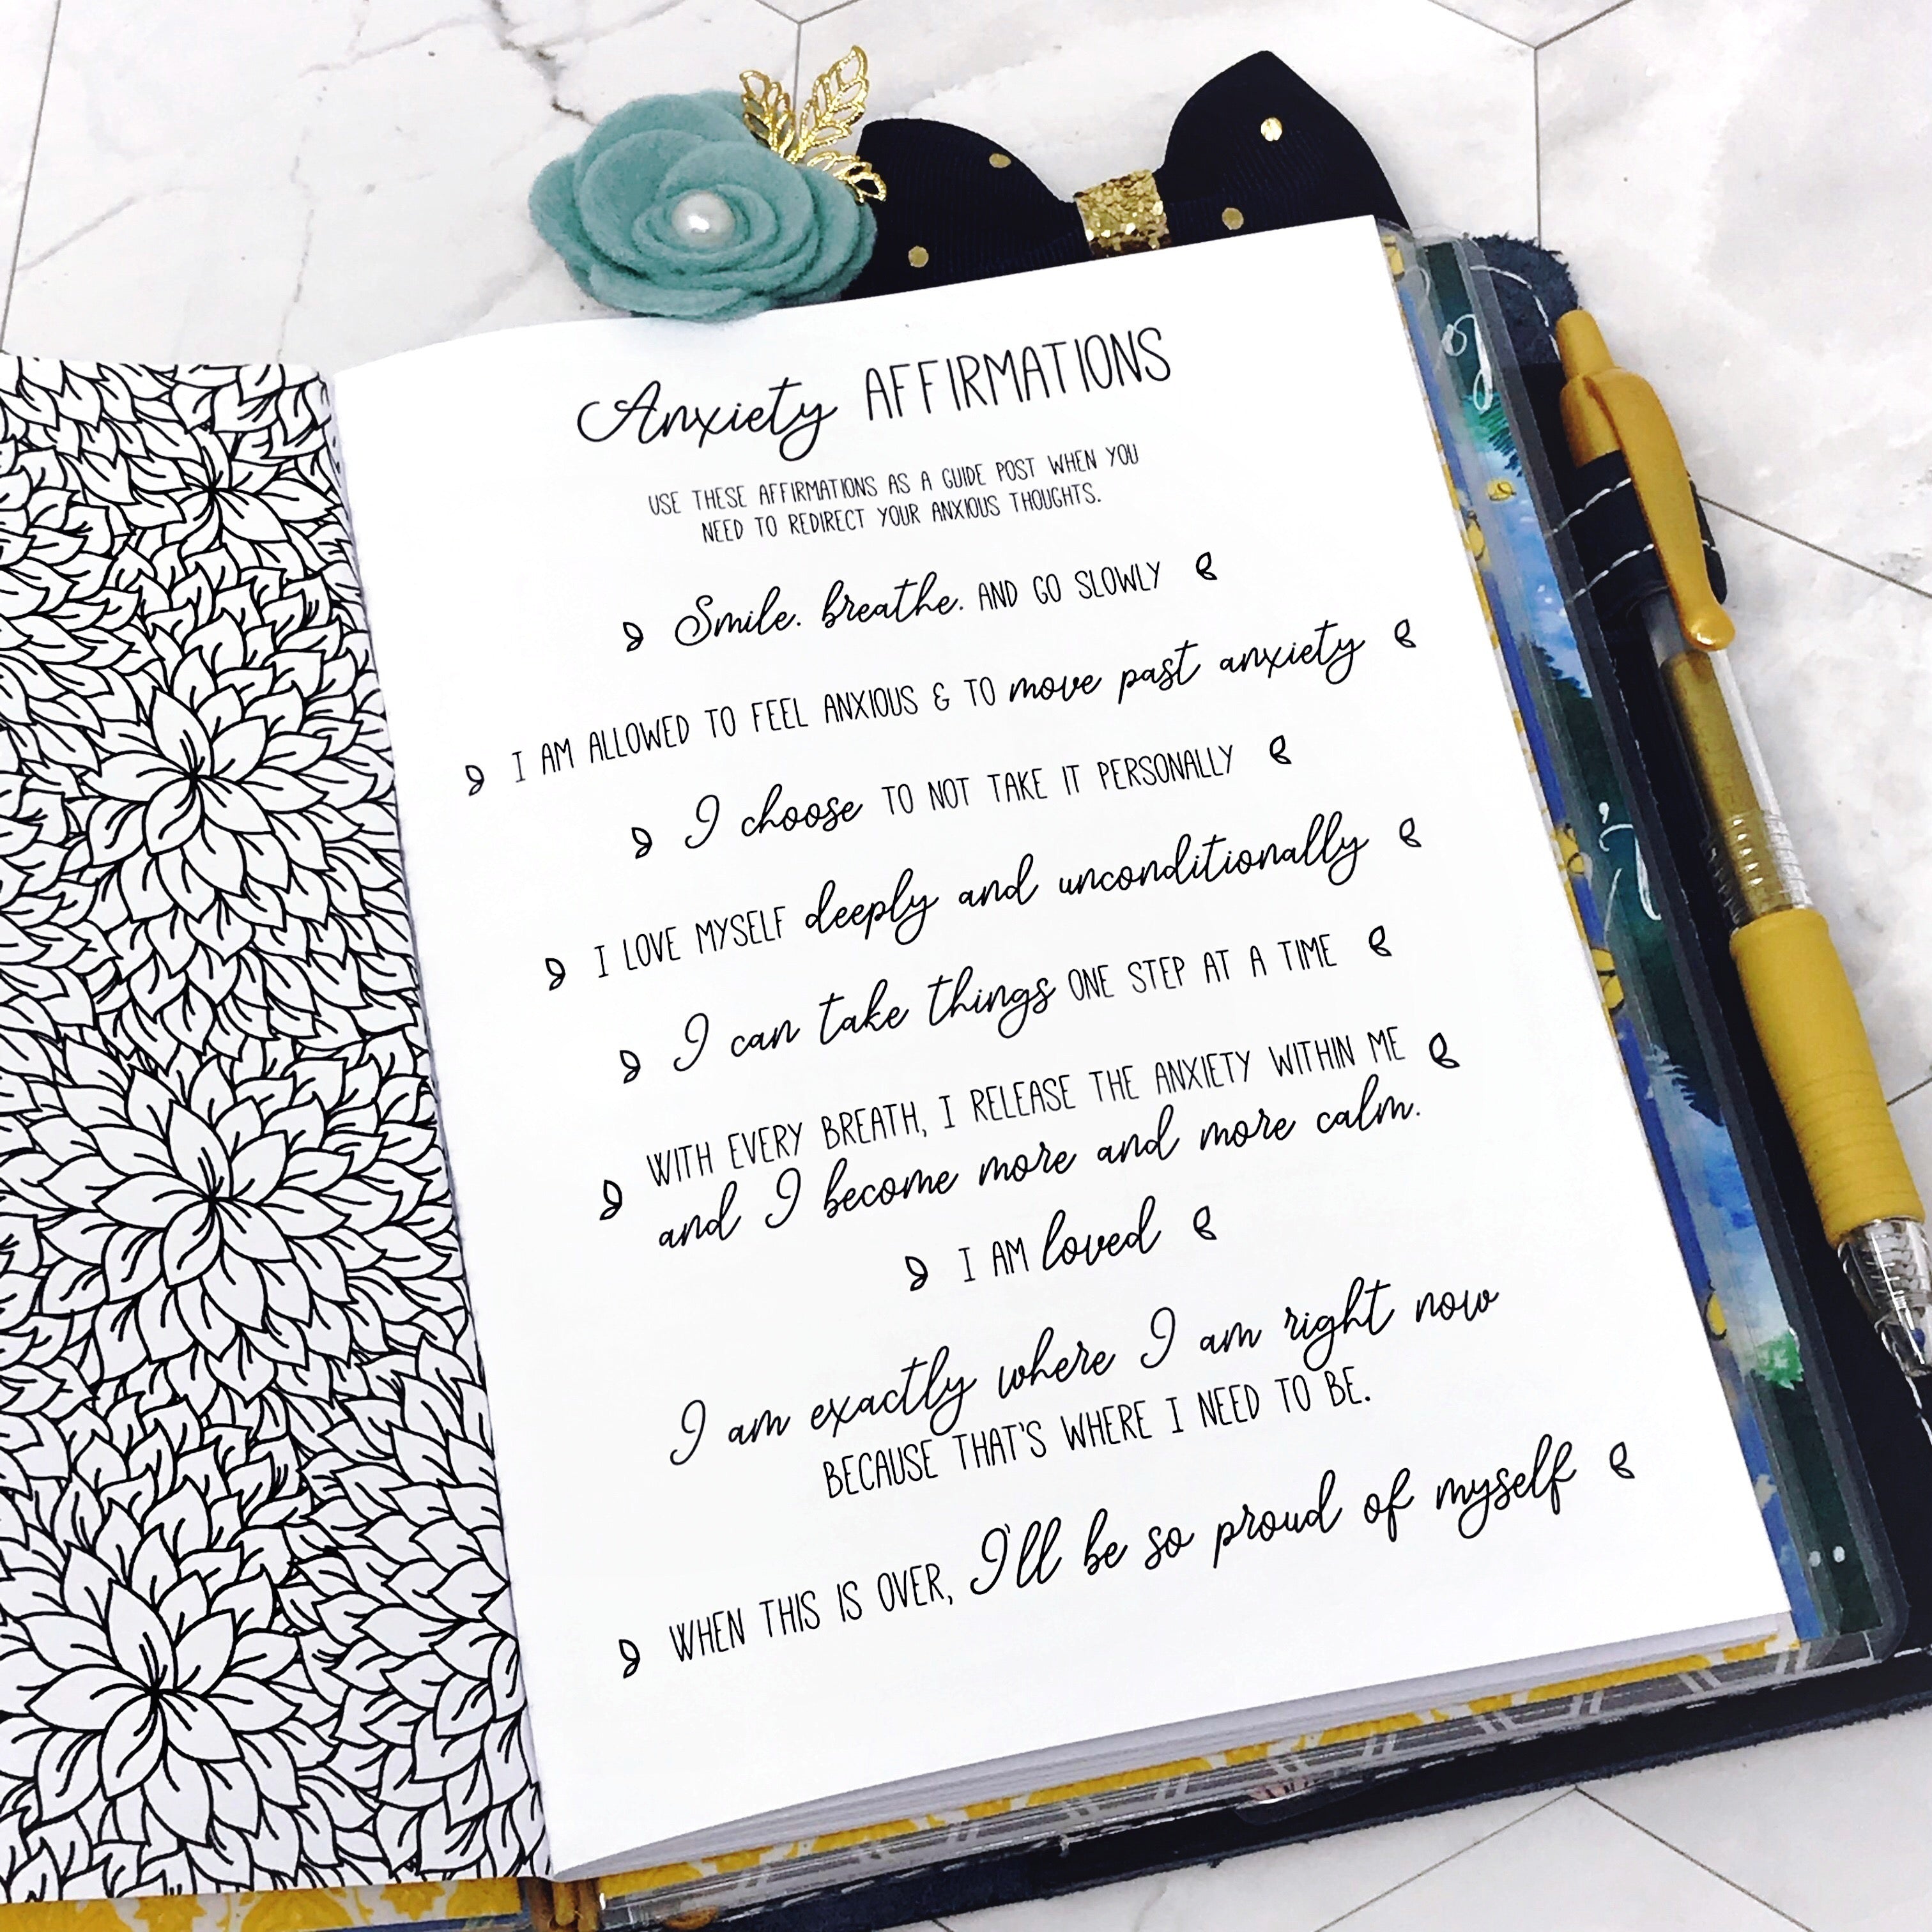 Anxiety AFFIRMATIONS
USE THESE AFFIRMATIONS AS A GUIDE POST WHEN YOU
NEED TO REDIRECT YOUR ANXIOUS THOUGHTS.
Smile. breathe. AND GO SLOWLY
I AM ALLOWED TO FEEL ANXIOUS & TO move past anxiety
I choose TO NOT TAKE IT PERSONALLY
I LOVE MYSELF deeply and unconditionally
I can take things ONE STEP AT A TIME
WITH EVERY BREATH, I RELEASE THE ANXIETY WITHIN ME
and I become more and more calm.
I AM loved
I am exactly where I am right now
BECAUSE THAT'S WHERE I NEED TO BE.
WHEN THIS IS OVER, I'll be so proud of myself